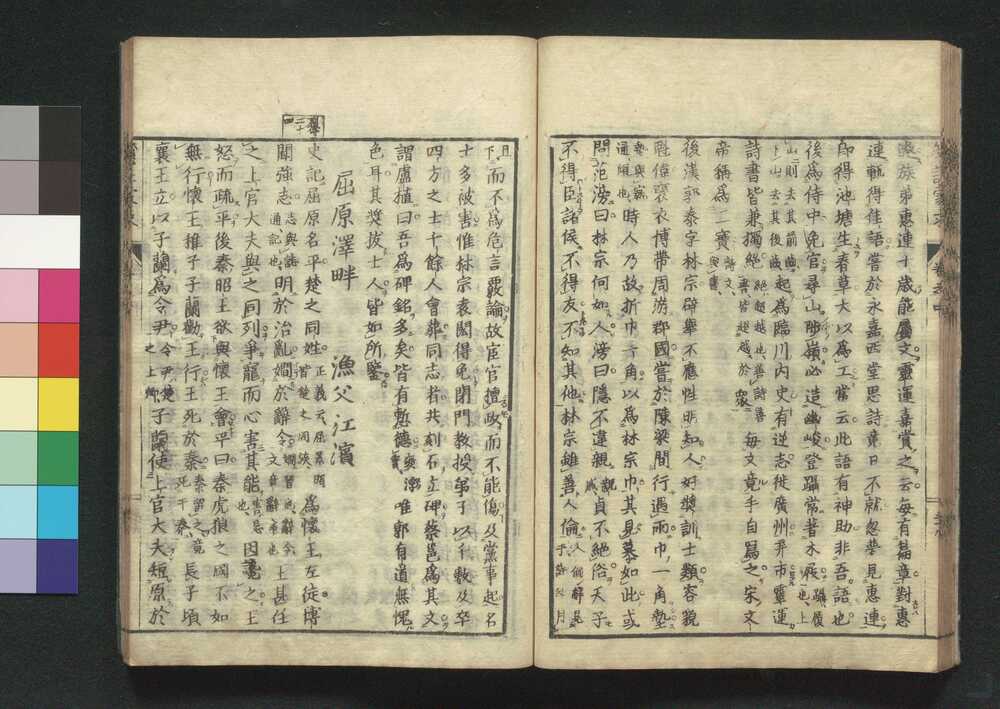 族弟惠連十歲能屬文靈運嘉賞之云每有篇章對惠
連輒得佳語嘗於永嘉西堂思詩竟日不就忽夢見惠連
即得池塘生春草大以爲工常云此語有神助非吾語也
後爲侍中免官尋山陟嶺必造幽峻登躡常著木屐上
山則去其前齒下山去其後齒起爲臨川内史有逆志徙廣州弃市靈運
詩書皆兼獨絶每文竟手自寫之宋文
帝稱爲二寶
後漢郭泰字林宗辟舉不應性明知人好奬訓士類容貌
魁偉褒衣博帶周游郡國嘗於陳梁間行遇雨巾一角墊
時人乃故折巾一角以爲林宗巾其見慕如此或
問范滂曰林宗何如人滂曰隱不違親貞不絶俗天子
不得臣諸侯不得友不知其他林宗雖善人倫
而不爲危言覈論故宦官擅政而不能傷及黨事起名
士多被害惟林宗袁閎得免閉門教授弟子以千數及卒
四方之士千餘人會葬同志者共刻石立碑蔡邕爲其文
謂盧植曰吾爲碑銘多矣皆有慙德唯郭有道無愧
色耳其奬拔士人皆如所鑒
屈原澤畔 漁父江濱
史記屈原名平楚之同姓爲懷王左徒博
聞強志明於治亂嫺於辭令王甚任
之上官大夫與之同列爭寵而心害其能因讒之王
怒而疏平後秦昭王欲與懷王會平曰秦虎狼之國不如
無行懷王稚子子蘭勸王行王死於秦長子頃
襄王立以子蘭爲令尹子蘭使上官大夫短原於